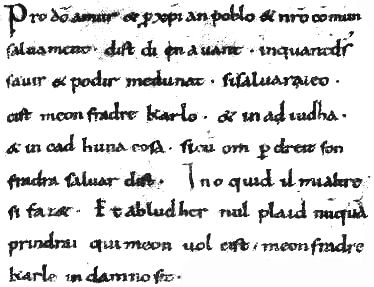 Pro dõ amur & p xp̃i an poblo & nr̃o cõmun
saluament. dist di en auant. inquantds̃
sauir & podir medunat. sisaluaraieo.
cist meon fradre karlo. & in adiudha.
& in cad huna cosa. sicũ om p dreit son
fradra saluar dist. Ino quid il mialtre
si faz&. Et abludher nul plaid nũquã
prindrai qui meon uol cist, meon fradre
karle in damno sit.